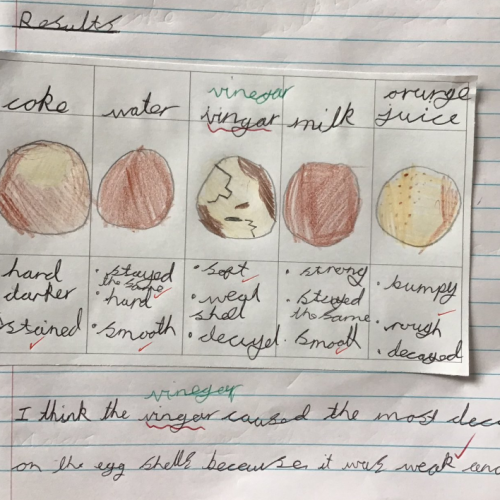 Results
vinegar
coke water vingar milk orange juice
hard
darker
stained
• stayed
the same
• hard
• smooth
• soft
• weak
shell
• decayed
• strong
• stayed
the same
• smooth
• bumpy
• rough
• decayed
vinegar
I think the vingar caused the most dec
on the egg shells because it was weak and